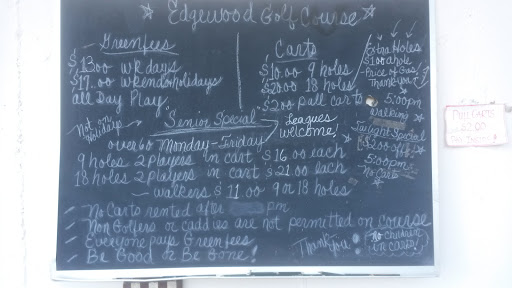 Edgewood Golf Course
Greenfees
$13.00 wkdays
$17.00 wkends & holidays
all Day Play
Carts
$10.00 9 holes
$20.00 18 holes
$2.00 pull carts
Extra Holes
$1.00 a hole
Price of Gas!
Thank you
5:00pm
Walking
Twilight Special
$2.00 off
5:00pm
No Carts
Not on Holidays
"Senior Special"
Leagues
Welcome!
over 60 Monday-Friday
9 holes 2 players in cart $16.00 each
18 holes 2 players in cart $21.00 each
walkers $11.00 9 or 18 holes
No Carts rented after pm
Non Golfers or caddies are not permitted on course
Everyone pays Greenfees
Be Good or Be Gone!
Thank You
No children
in carts!
Pull Carts
$2.00